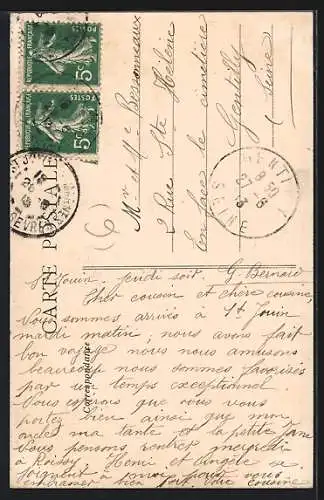 POSTES
RÉPUBLIQUE FRANÇAISE
5c
POSTES
RÉPUBLIQUE FRANÇAISE
5c
CARTE POSTALE
Correspondance
Mr et Me Bessonneaux
2 Rue Ste Hélène
En face le cimetière
Gentilly
Seine
GENTI
9 50
27 - 8
SEINE
(6)
St Jouin, jeudi soir, G. Bernard
Cher cousin et chère cousine,
Nous sommes arrivés à St Jouin
mardi matin; nous avons fait
bon voyage nous nous amusons
beaucoup nous sommes favorisés
par un temps exceptionnel
Nous espérons que vous vous
portez bien ainsi que mon
oncle ma tante et la petite Jane
Nous pensons rentrer mercredi
à Roissy. Henri et Angèle se
joignent à moi pour vous
embrasser bien fort. Votre cousine